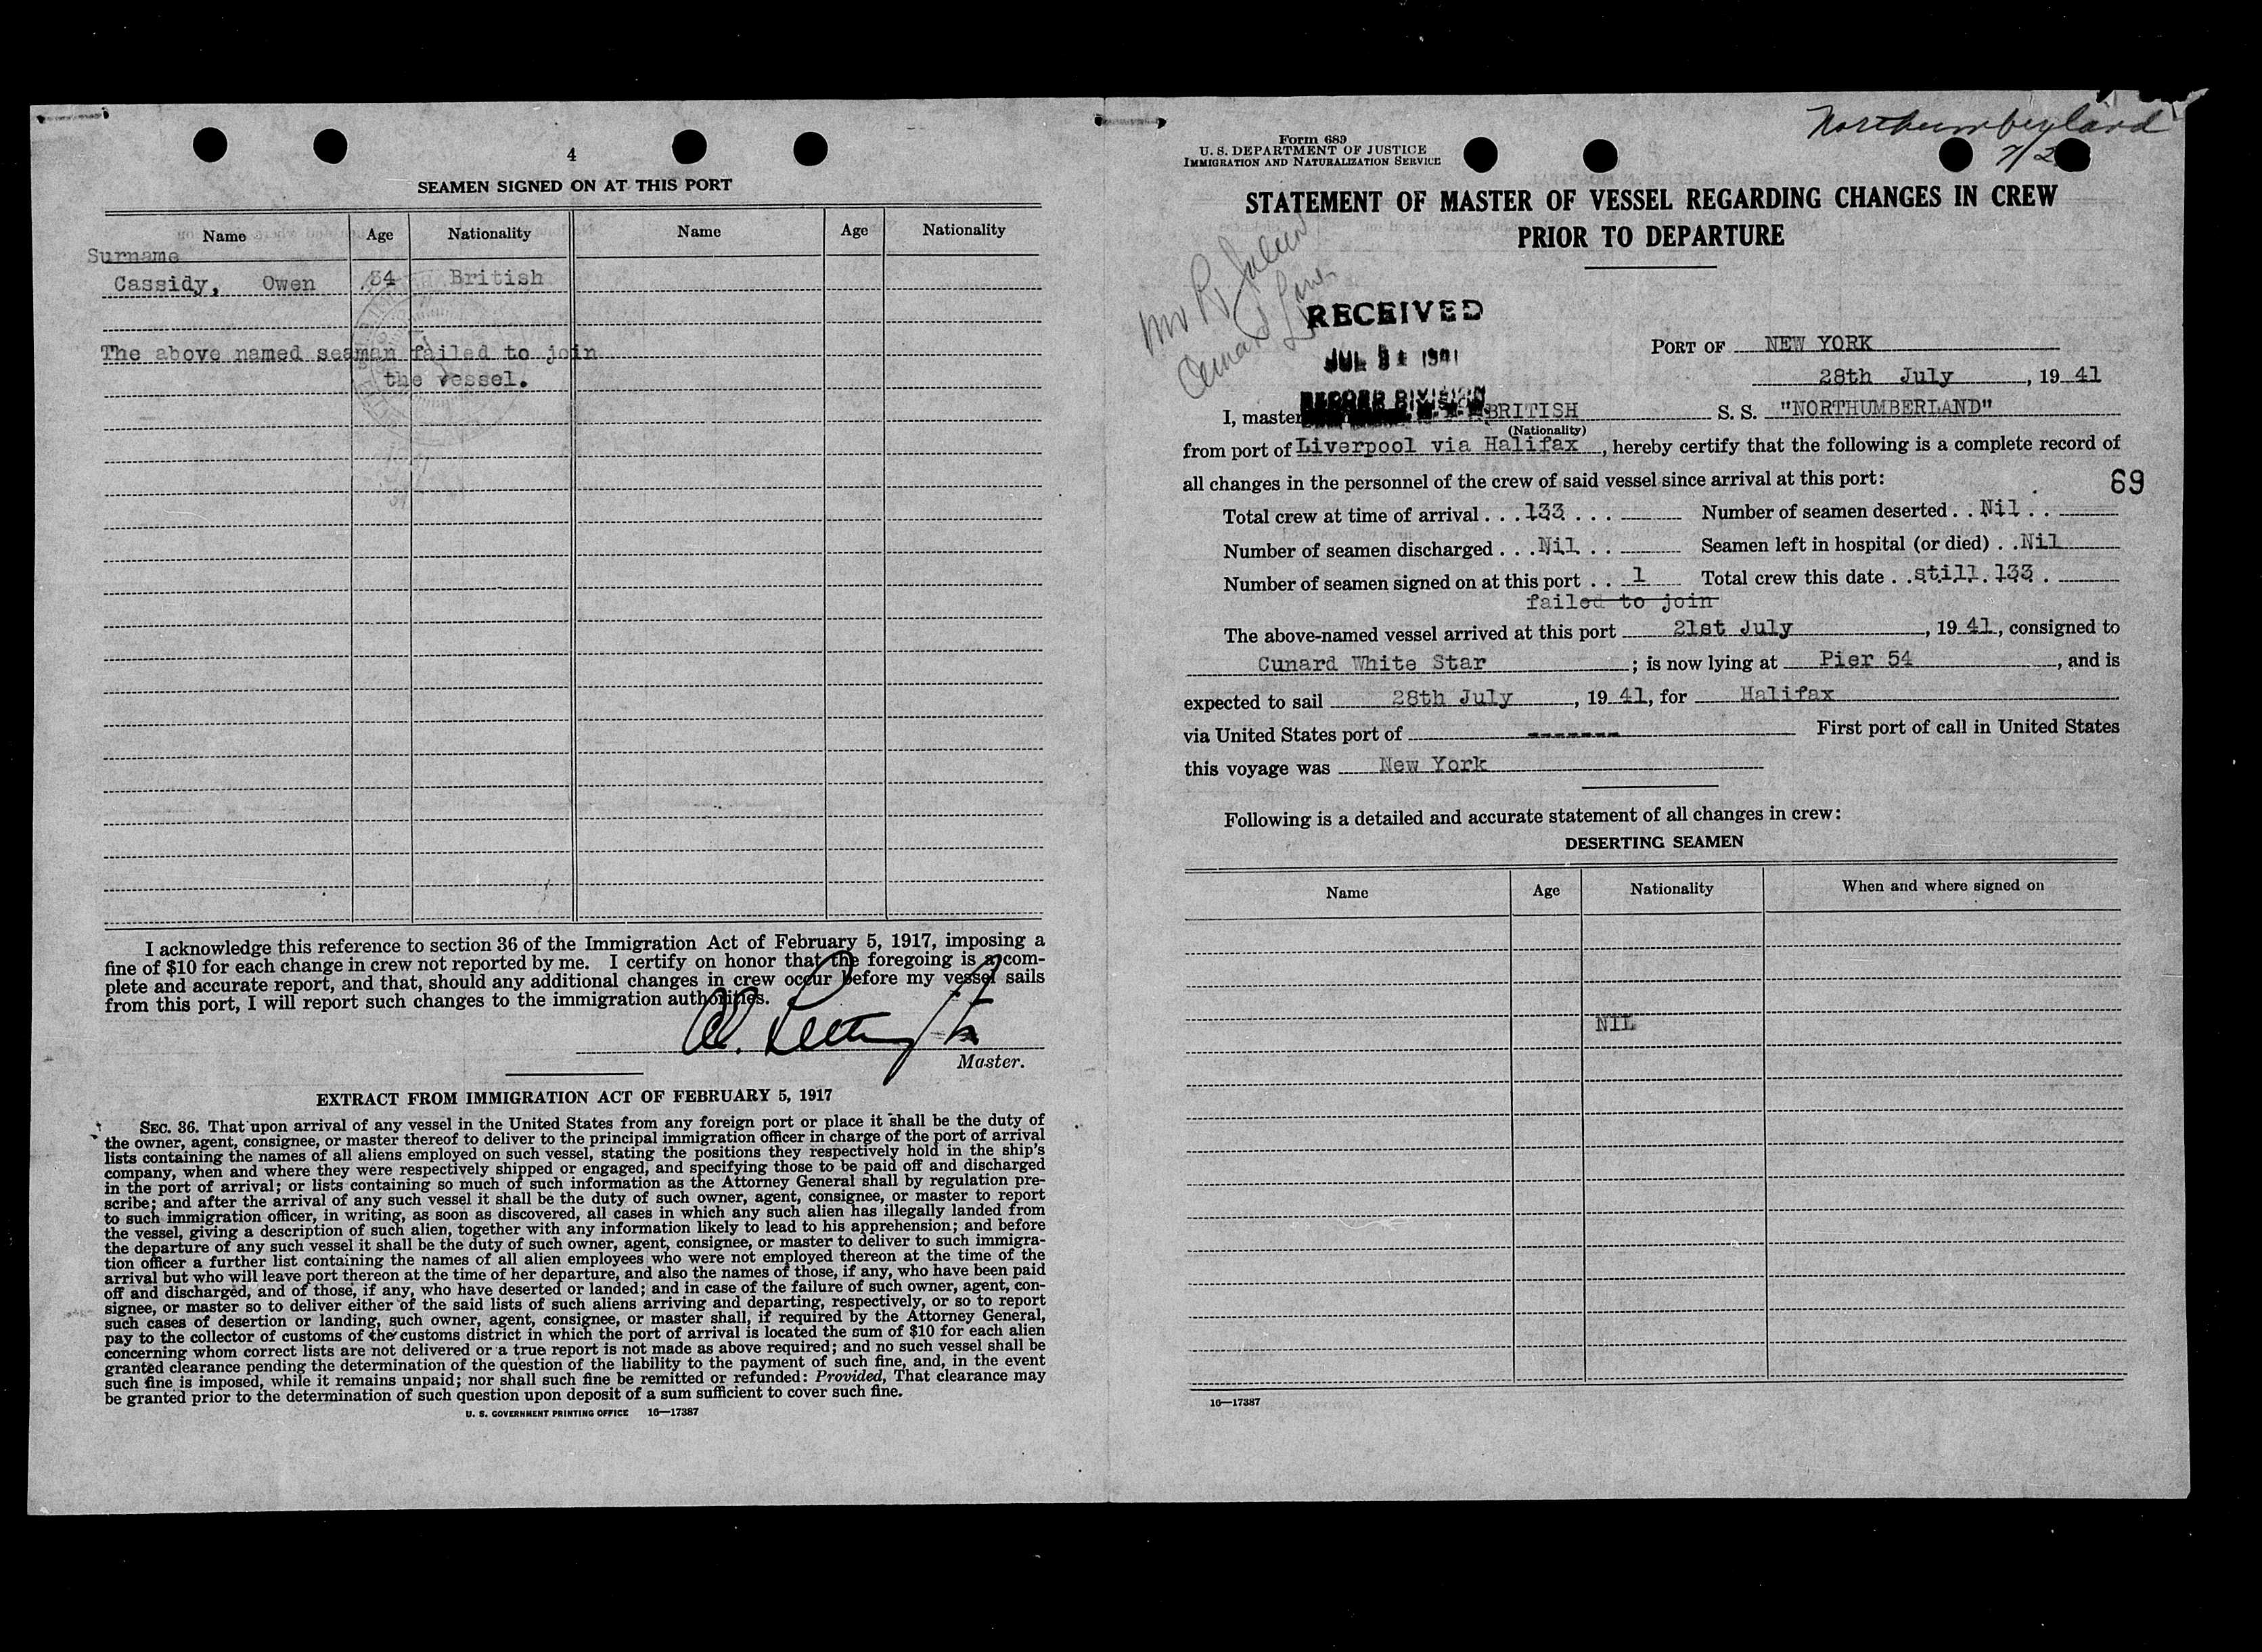 4
SEAMEN SIGNED ON AT THIS PORT
Name Age Nationality Name Age Nationality
Surname
Cassidy, Owen 34 British
The above named seaman failed to join
the vessel.
I acknowledge this reference to section 36 of the Immigration Act of February 5, 1917, imposing a
fine of $10 for each change in crew not reported by me. I certify on honor that the foregoing is a com-
plete and accurate report, and that, should any additional changes in crew occur before my vessel sails
from this port, I will report such changes to the immigration authorities.
Master.
EXTRACT FROM IMMIGRATION ACT OF FEBRUARY 5, 1917
SEC. 36. That upon arrival of any vessel in the United States from any foreign port or place it shall be the duty of
the owner, agent, consignee, or master thereof to deliver to the principal immigration officer in charge of the port of arrival
lists containing the names of all aliens employed on such vessel, stating the positions they respectively hold in the ship's
company, when and where they were respectively shipped or engaged, and specifying those to be paid off and discharged
in the port of arrival; or lists containing so much of such information as the Attorney General shall by regulation pre-
scribe; and after the arrival of any such vessel it shall be the duty of such owner, agent, consignee, or master to report
to such immigration officer, in writing, as soon as discovered, all cases in which any such alien has illegally landed from
the vessel, giving a description of such alien, together with any information likely to lead to his apprehension; and before
the departure of any such vessel it shall be the duty of such owner, agent, consignee, or master to deliver to such immigra-
tion officer a further list containing the names of all alien employees who were not employed thereon at the time of the
arrival but who will leave port thereon at the time of her departure, and also the names of those, if any, who have been paid
off and discharged, and of those, if any, who have deserted or landed; and in case of the failure of such owner, agent, con-
signee, or master so to deliver either of the said lists of such aliens arriving and departing, respectively, or so to report
such cases of desertion or landing, such owner, agent, consignee, or master shall, if required by the Attorney General,
pay to the collector of customs of the customs district in which the port of arrival is located the sum of $10 for each alien
concerning whom correct lists are not delivered or a true report is not made as above required; and no such vessel shall be
granted clearance pending the determination of the question of the liability to the payment of such fine, and, in the event
such fine is imposed, while it remains unpaid; nor shall such fine be remitted or refunded: Provided, That clearance may
be granted prior to the determination of such question upon deposit of a sum sufficient to cover such fine.
U. S. GOVERNMENT PRINTING OFFICE 16—17387
Northumberland
7/2
Form 689
U. S. DEPARTMENT OF JUSTICE
IMMIGRATION AND NATURALIZATION SERVICE
STATEMENT OF MASTER OF VESSEL REGARDING CHANGES IN CREW
PRIOR TO DEPARTURE
RECEIVED
JUL 31 1941
RECORD DIVISION
PORT OF NEW YORK
28th July, 19 41
I, master BRITISH S. S. "NORTHUMBERLAND"
(Nationality)
from port of Liverpool via Halifax, hereby certify that the following is a complete record of
all changes in the personnel of the crew of said vessel since arrival at this port:
69
Total crew at time of arrival . . . 133 . . . Number of seamen deserted . . Nil . .
Number of seamen discharged . . . Nil . . Seamen left in hospital (or died) . . Nil
Number of seamen signed on at this port . . 1 Total crew this date . . still 133 .
failed to join
The above-named vessel arrived at this port 21st July, 19 41, consigned to
Cunard White Star; is now lying at Pier 54, and is
expected to sail 28th July, 19 41, for Halifax
via United States port of ------- First port of call in United States
this voyage was New York
Following is a detailed and accurate statement of all changes in crew:
DESERTING SEAMEN
Name Age Nationality When and where signed on
NIL
16—17387